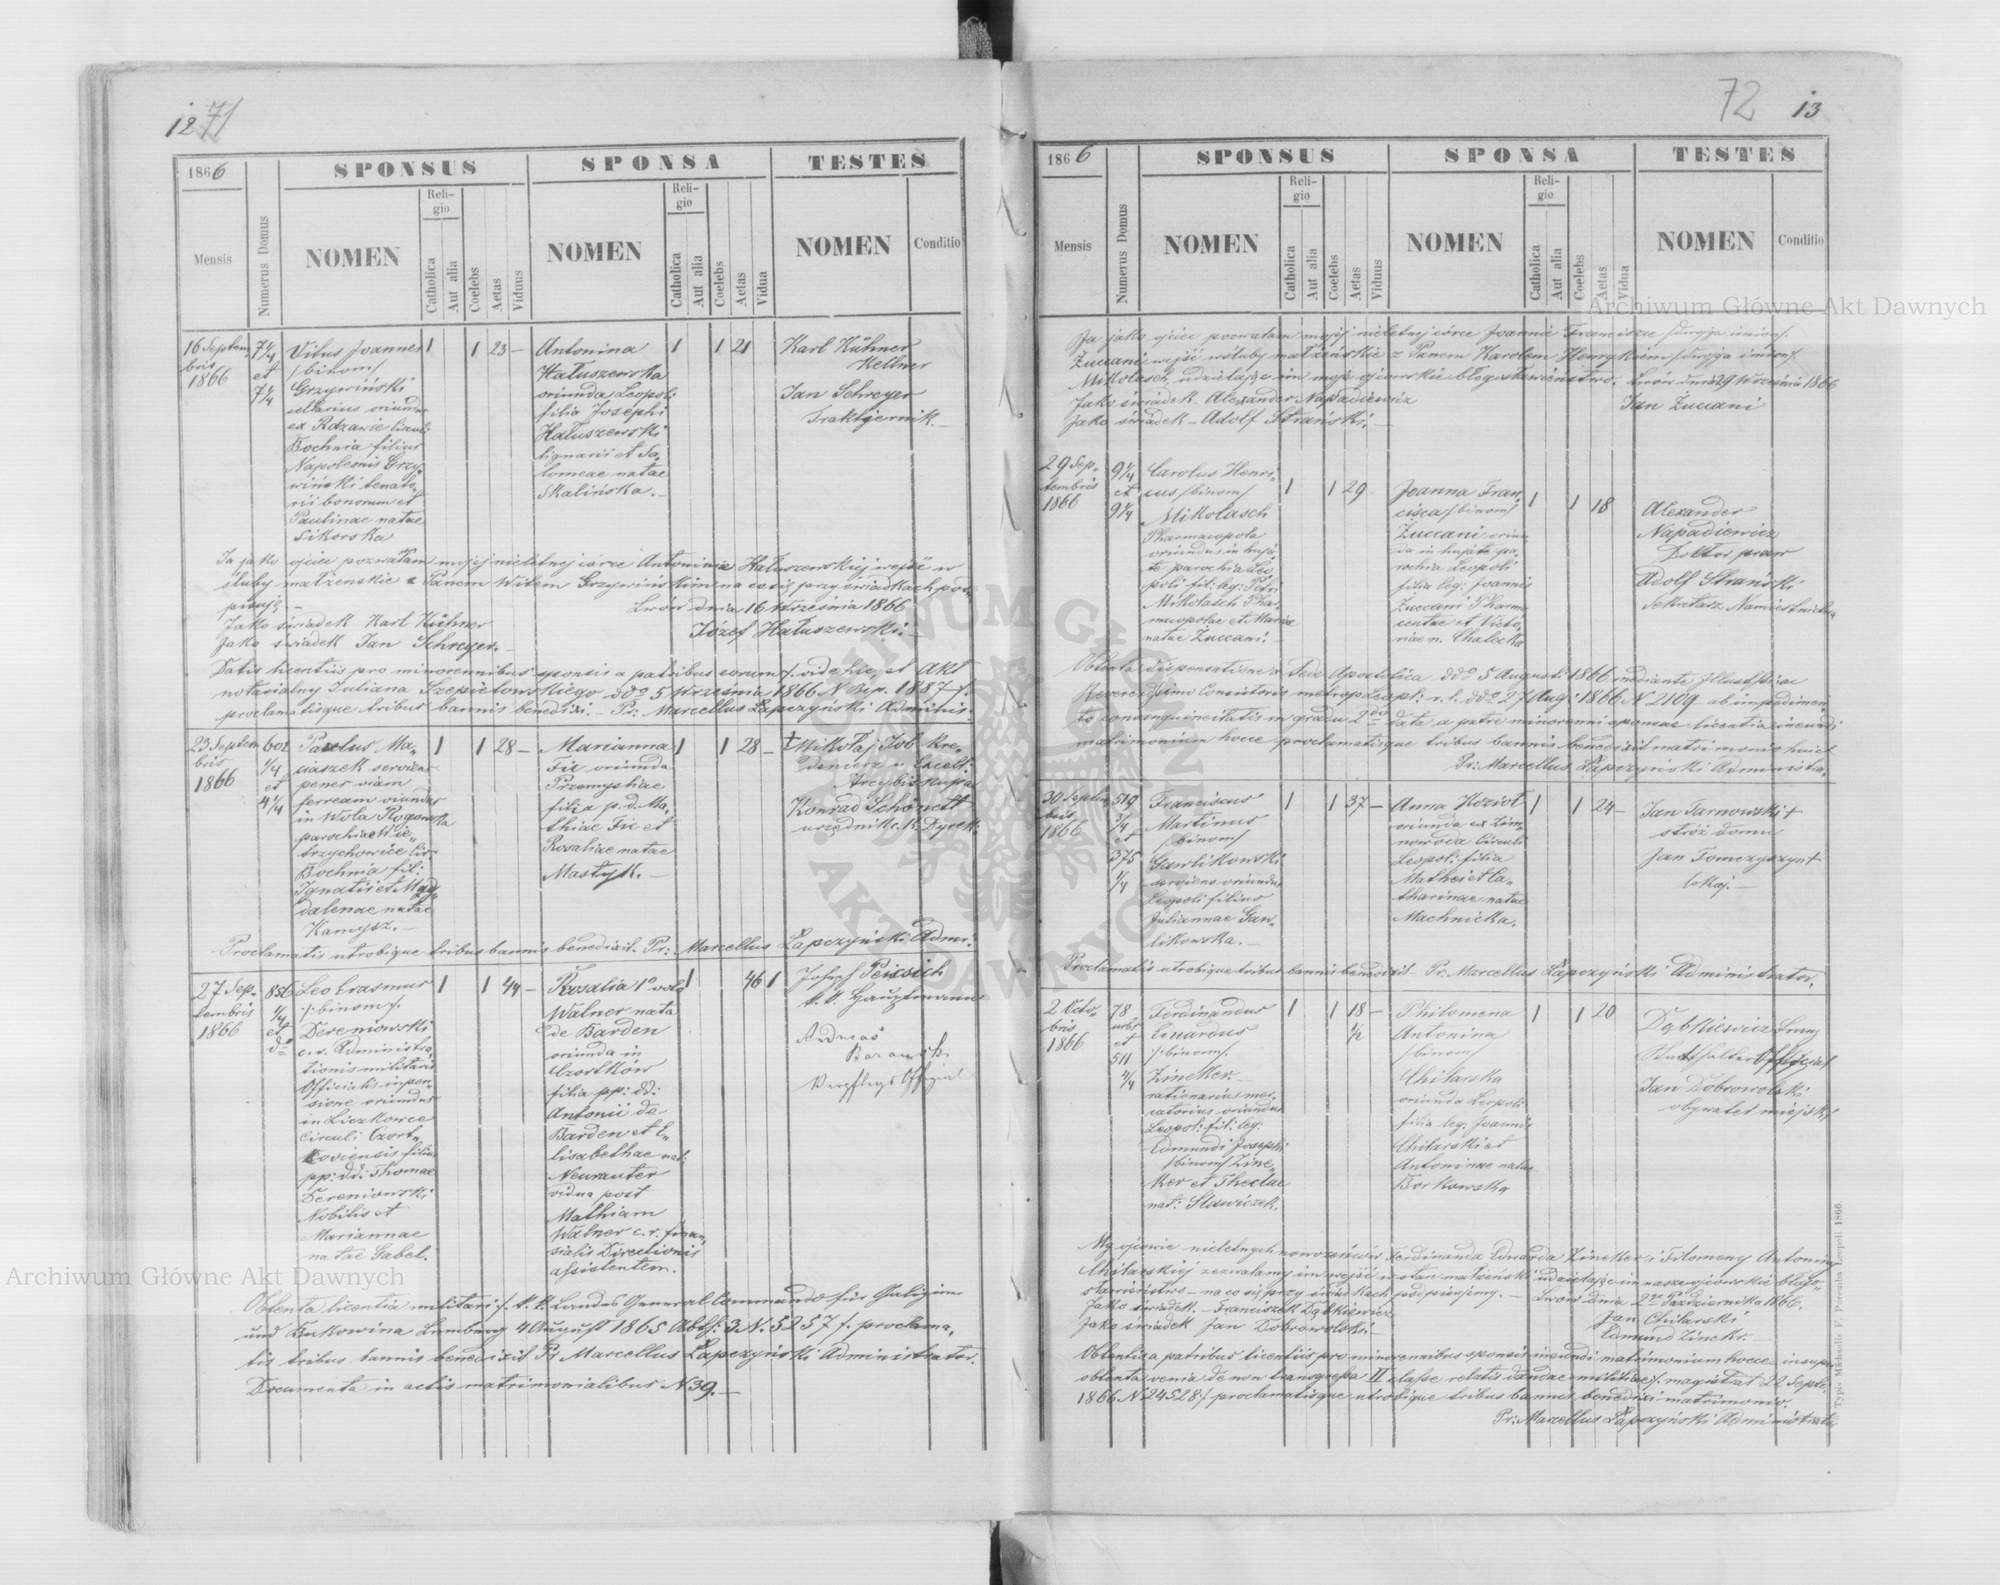 12 71
1866
SPONSUS
SPONSA
TESTES
Mensis
Numerus Domus
NOMEN
Religio
Catholica
Aut alia
Coelebs
Aetas
Viduus
NOMEN
Religio
Catholica
Aut alia
Coelebs
Aetas
Vidua
NOMEN
Conditio
16 Septem
bris
1866
7 1/4
et
7 1/4
Vitus Joannes
/binom/
Grzywiński
cellarius oriundus
ex Rdzawie Circuli
Bochnia filius
Napoleonis Grzy-
wiński tenato-
rii bonorum et
Paulinae natae
Sikorska
1
1
23 –
Antonina
Hałuszewska
oriunda Leopoli
filia Josephi
Hałuszewski
lignarii et Sa-
lomeae natae
Skalińska. –
1
1
21
Karl Kühner
Kellner
Jan Schreyer
Traktyernik. –
Ja jako ojciec pozwalam mojej nieletniej córce Antoninie Hałuszewskiej wejść w
śluby małżenskie z Panem Witem Grzywińskim na co się przy świadkach pod-
pisuję. –
Lwów dnia 16 Września 1866
Jako świadek Karl Kühner
Józef Hałuszewski. –
Jako świadek Jan Schreyer. –
Datis licentiis pro minorennibus sponsis a patribus eorum /. vide hic, et Akt
notaryalny Juliana Szepietowskiego ddo 5 Września 1866 N Rep. 1887 /.
proclamatisque tribus bannis benedixi. – Pr. Marcellus Łapczyński Adminis.
23 Septem
bris
1866
601
1/4
et
4 1/4
Paulus Ma-
ciaszek serviens
penes viam
ferream oriundus
in Wola Rogowska
parochiae Wie-
trzychowice Cir-
Bochnia fil:
Ignatii et Mag-
dalenae natae
Kamysz. –
1
1
28 –
Marianna
Fic oriunda
Przemysliae
filia p. d. Ma-
thiae Fic et
Rosaliae natae
Mastyk. –
1
1
28 –
† Mikołaj Job Kre-
dencerz u Excell:
Arcybiskupa
Konrad Schönett
urzędnik c. k. Dyrek.
Proclamatis utrobique tribus bannis benedixit. Pr: Marcellus Łapczyński Admi:
27 Sep-
tembris
1866
856
1/4
et
do
Leo Erasmus
/: binom /.
Dereniowski
c. r. Administra-
tionis militaris
Officialis in pen-
sione oriundus
in Liczkowce
Circuli Czort-
koviensis filius
pp: dd: Thomae
Dereniowski
Nobilis et
Mariannae
natae Gabel.
1
1
44 –
Rosalia 1o voto
Walner nata
de Barden
oriunda in
Czortków
filia pp: dd:
Antonii de
Barden et E-
lisabethae nat:
Neurauter
vidua post
Mathiam
Walner c. r. finan-
sialis Directionis
assistentem.
1
46 1
Joseph
k. k. Hauptmann
Andreas
Verpflegs Offizial
Obtenta licentia militari /. k. k. Landes General Commando für Galizien
und Bukowina Lemberg 4 August 1865 Abth: 3 N. 5257 /. proclama-
tis tribus bannis benedixit Pr Marcellus Łapczyński Administrator.
Documenta in actis matrimonialibus N 39. –
72 13
1866
SPONSUS
SPONSA
TESTES
Mensis
Numerus Domus
NOMEN
Religio
Catholica
Aut alia
Coelebs
Aetas
Viduus
NOMEN
Religio
Catholica
Aut alia
Coelebs
Aetas
Vidua
NOMEN
Conditio
Ja jako ojciec pozwalam mojej nieletniej córce Joannie Franciszce /drugie imion/
Zuccani wejść w śluby małżeńskie z Panem Karolem Henrykiem /drugie imion/
Mikolasch, udzielając im moje ojcowskie błogosławieństwo. Lwów dnia 29 Września 1866
Jako świadek – Alexander Napadiewicz
Jan Zuccani
Jako świadek – Adolf Strański. –
29 Sep-
tembris
1866
9 1/4
et
9 1/4
Carolus Henri-
cus /binom/
Mikolasch
Pharmacopola
oriundus in huja-
te parochia Leo-
poli fil: leg: Petri
Mikolasch Phar-
macopolae et Mariae
natae Zuccani. –
1
1
29
Joanna Fran-
cisca /binom/
Zuccani oriun-
da in hujate pa-
rochia Leopoli
filia leg: Joannis
Zuccani Pharma
ceutae et Victo-
riae n. Chalecka
1
1
18
Alexander
Napadiewicz
Doktor praw
Adolf Strański
Sekretarz Namiestnictwa
Obtenta dispensatione a Sede Apostolica ddo 5 August: 1866 mediante Illustssimo ac
Reverendissimo Consistorio metropol: capl: r. l. ddo 27 Aug: 1866 N 2109 ab impedimen-
to consanguineitatis in gradu 2do data a patre minorenni sponsae licentia ineundi
matrimonium hocce proclamatisque tribus bannis benedixit matrimonio huic
Pr: Marcellus Łapczyński Administra.
30 Septem
bris
1866
519
3/4
et
375
1/4
Franciscus
Martinus
/binom/
Gawlikowski
serviens oriundus
Leopoli filius
Juliannae Gaw-
likowska. –
1
1
37 –
Anna Kozioł
oriunda ex Zim-
nowoda Circuli
Leopol: filia
Mathei et Ca-
tharinae natae
Machnicka.
1
1
24 –
Jan Tarnowski +
stróż domu
Jan Tomczyszyn +
lokaj. –
Proclamatis utrobique tribus bannis benedixit. Pr: Marcellus Łapczyński Administrator.
2 Octo-
bris
1866
78
urbs
et
511
4/4
Ferdinandus
Eduardus
/: binom /.
Zineker. –
rationarius mer-
catorius oriundus
Leopol: fil: leg:
Edmundi Josephi
/binom/ Zine-
ker et Theclae
nat: Sławiczek.
1
1
18 –
1/2
Philomena
Antonina
/binom/
Chilarska
oriunda Leopoli
filia leg: Joannis
Chilarski et
Antoninae natae
Borkowska
1
1
20
Dąbkiewicz Franz
Statthalterei Offizial
Jan Dobrowolski
obywatel miejski
My ojcowie nieletnych nowożeńców Ferdinanda Edwarda Zineker i Filomeny Antoniny
Chilarskiej zezwalamy im wejść w stan małżeński udzielając im nasze ojcowskie błogo-
sławieństwo – na co się przy świadkach podpisujemy. – Lwów dnia 2go Października 1866.
Jako świadek. – Franciszek Dąbkiewicz
Jan Chilarski
Jako świadek Jan Dobrowolski. –
Edmund Zineker. –
Obtentis a patribus licentiis pro minorennibus sponsis ineundi matrimonium hocce insuper
obtenta venia de non transgressa II classe relatis dandae militiae /. magistrat 22 Septe.
1866 N 24528 /. proclamatisque utrobique tribus bannis benedixi matrimonio.
Pr: Marcellus Łapczyński Administrator
Typis Michaelis F. Poremba Leopoli 1866.
Archiwum Główne Akt Dawnych
Archiwum Główne Akt Dawnych
ARCHIWUM GŁÓWNE AKT DAWNYCH